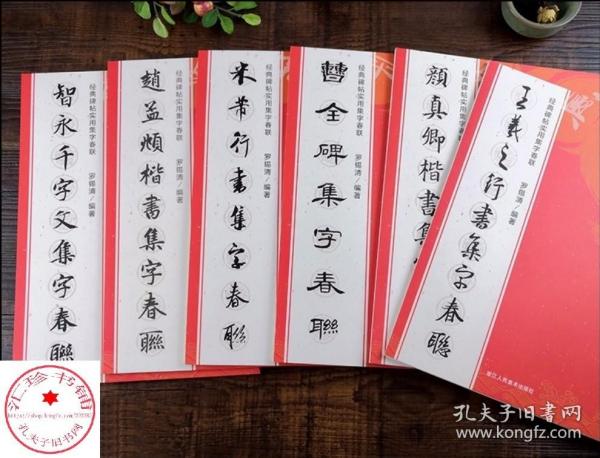 智永千字文集字春聯
经典碑帖实用集字春联
罗锡清/编著
趙孟頫楷書集字春聯
经典碑帖实用集字春联
罗锡清/编著
米芾行書集字春聯
经典碑帖实用集字春联
罗锡清/编著
曹全碑集字春聯
经典碑帖实用集字春联
罗锡清/编著
顔真卿楷書集
经典碑帖实用集字春联
罗锡清/编著
王羲之行書集字春聯
经典碑帖实用集字春联
罗锡清/编著
浙江人民美术出版社
汇珍书铺
孔夫子旧书网
孔夫子旧书网
www.kongfz.com